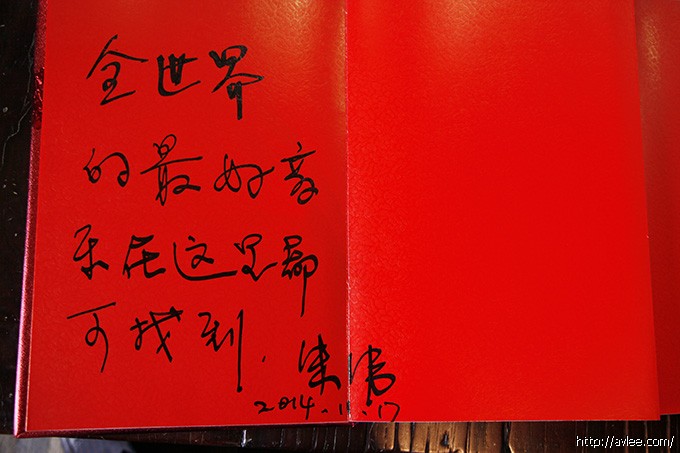 全世界
的最好音
乐在这里都
可找到.
2014.11.17
http://avlee.com/